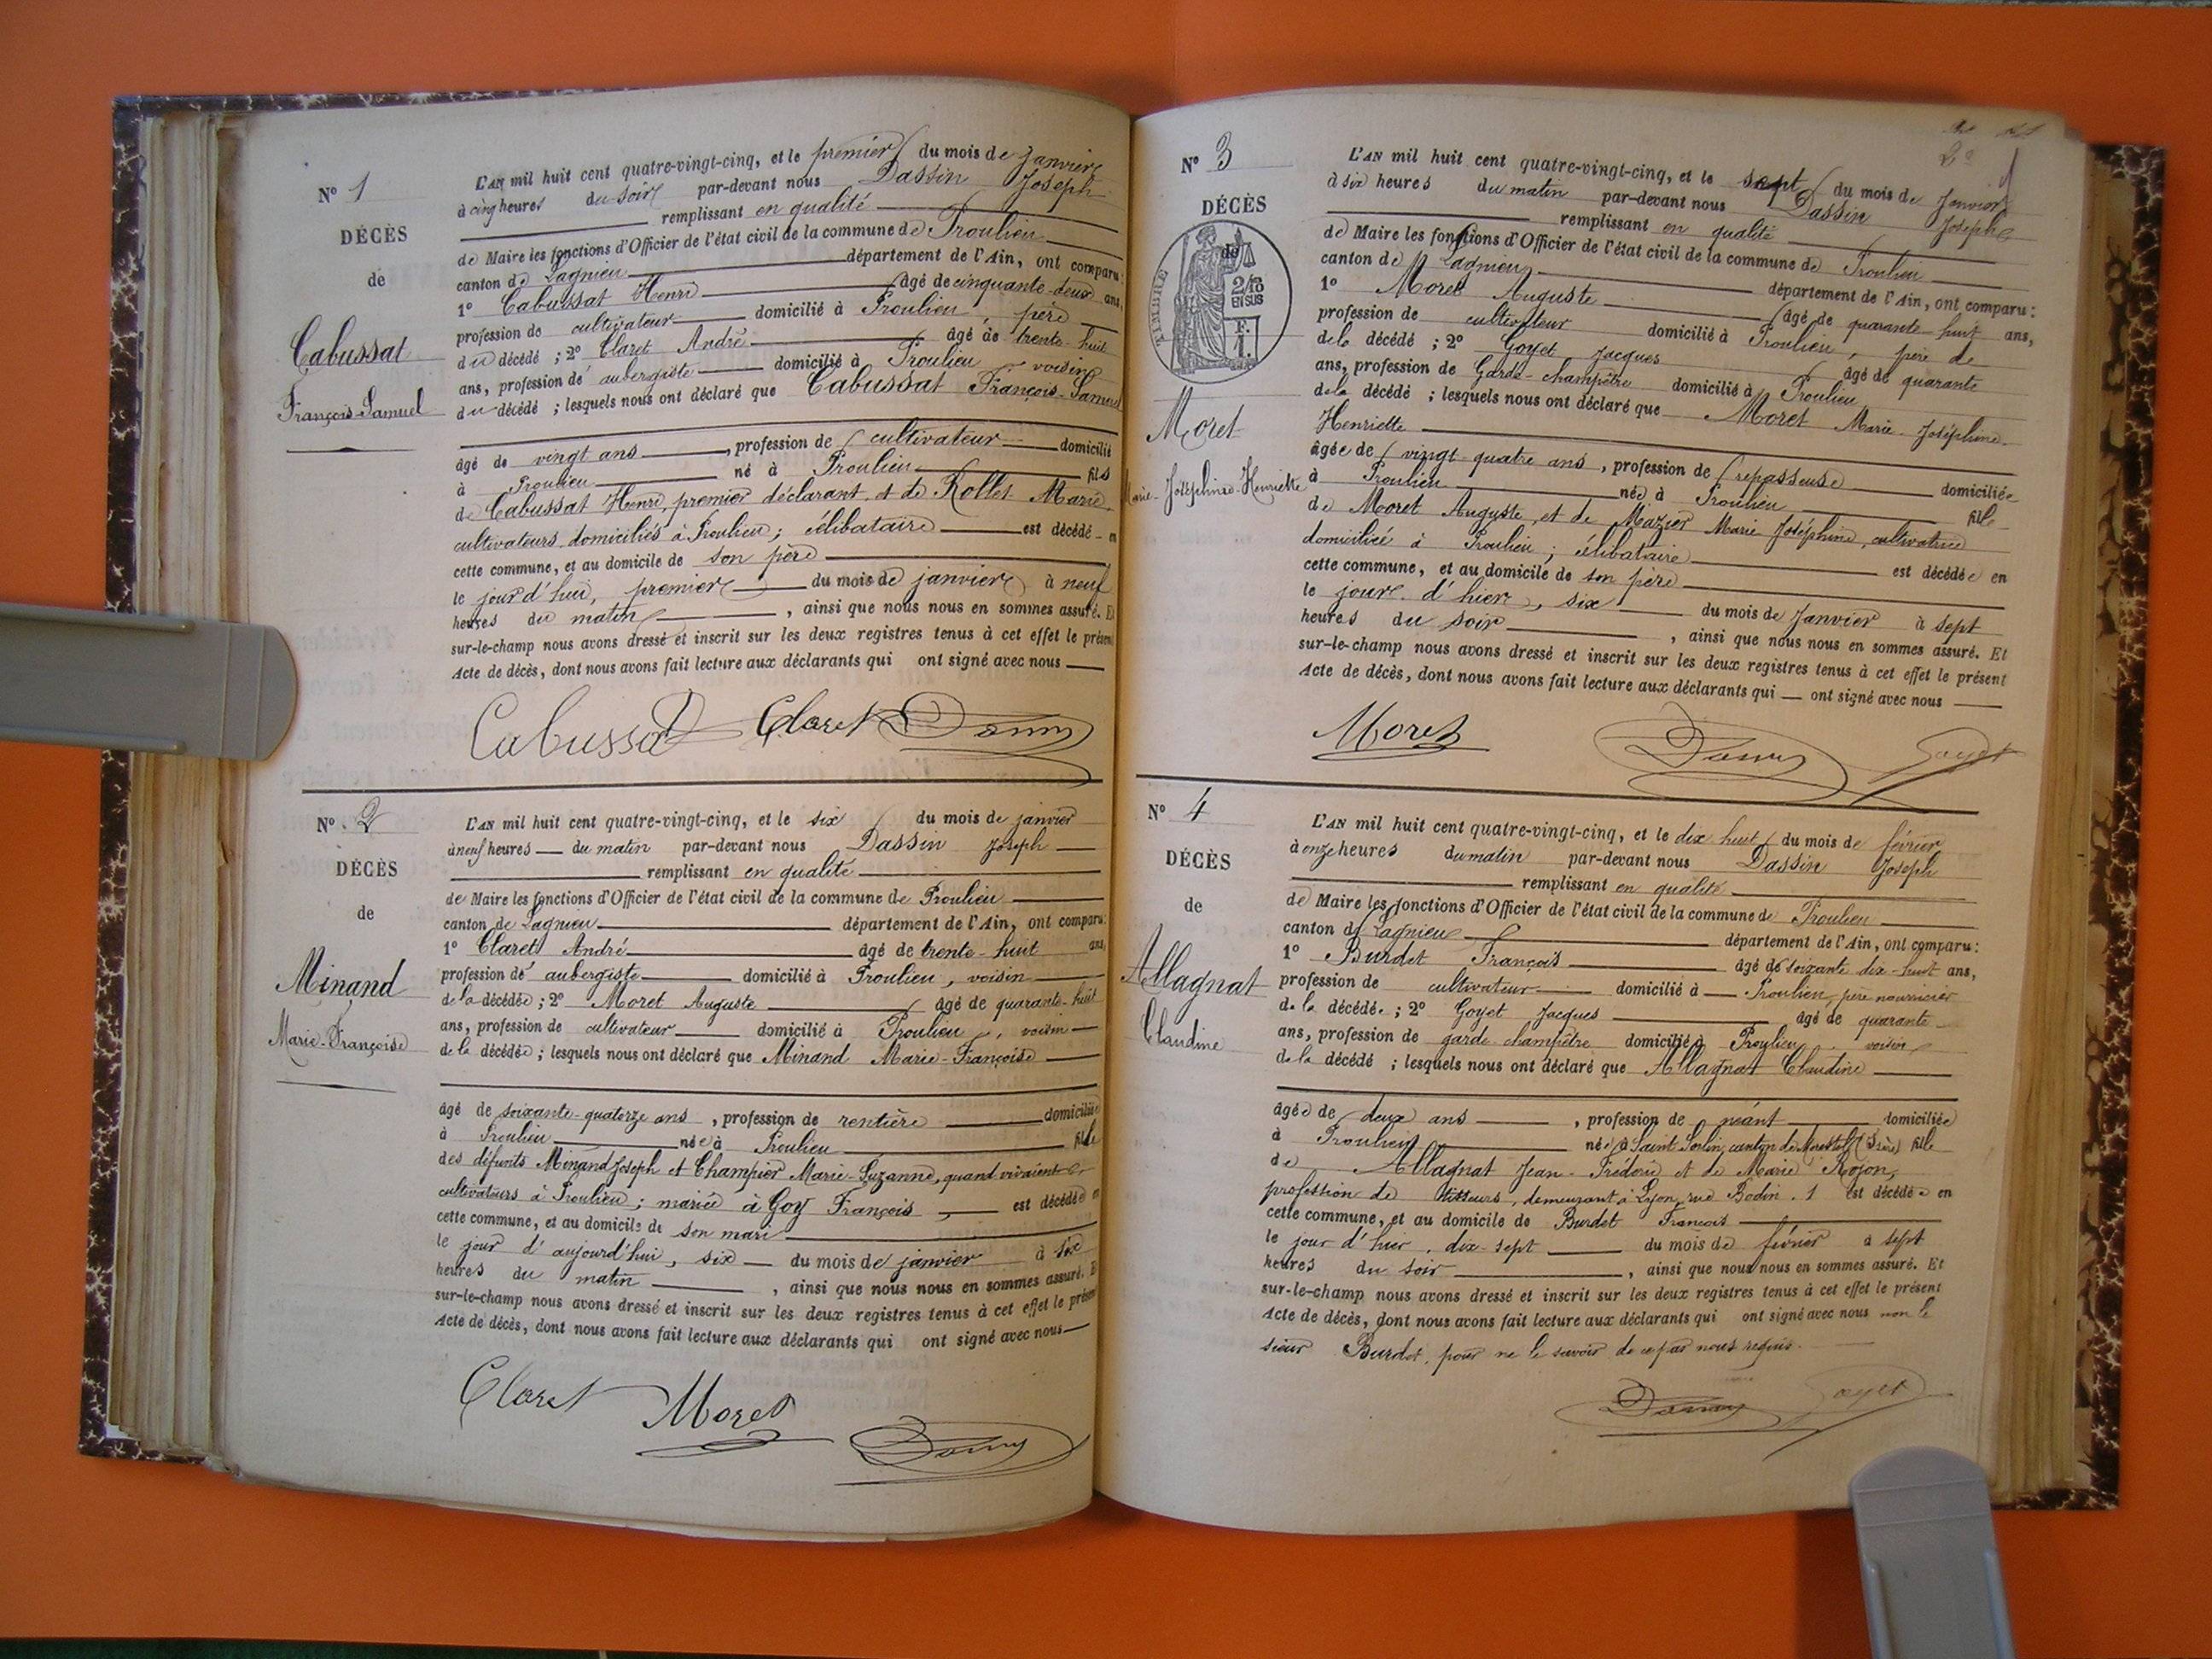 N° 1
DÉCÈS
de
Cabussat
François-Samuel
L'AN mil huit cent quatre-vingt-cinq, et le premier du mois de janvier
à cinq heures du soir par-devant nous Dassin Joseph
remplissant en qualité
de Maire les fonctions d'Officier de l'état civil de la commune de Proulieu
canton de Lagnieu département de l'Ain, ont comparu:
1° Cabussat Henri âgé de cinquante-deux ans,
profession de cultivateur domicilié à Proulieu, père
du décédé ; 2° Claret André âgé de trente-huit
ans, profession de aubergiste domicilié à Proulieu voisin
du décédé ; lesquels nous ont déclaré que Cabussat François-Samuel
âgé de vingt ans, profession de cultivateur domicilié
à Proulieu né à Proulieu fils
de Cabussat Henri, premier déclarant et de Rollet Marie,
cultivateurs domiciliés à Proulieu ; célibataire est décédé en
cette commune, et au domicile de son père
le jour d'hui, premier du mois de janvier à neuf
heures du matin, ainsi que nous nous en sommes assuré. Et
sur-le-champ nous avons dressé et inscrit sur les deux registres tenus à cet effet le présent
Acte de décès, dont nous avons fait lecture aux déclarants qui ont signé avec nous
Cabussat Claret Dassin
N° 2
DÉCÈS
de
Minand
Marie-Françoise
L'AN mil huit cent quatre-vingt-cinq, et le six du mois de janvier
à neuf heures du matin par-devant nous Dassin Joseph
remplissant en qualité
de Maire les fonctions d'Officier de l'état civil de la commune de Proulieu
canton de Lagnieu département de l'Ain, ont comparu:
1° Claret André âgé de trente-huit ans,
profession de aubergiste domicilié à Proulieu, voisin
de la décédée ; 2° Moret Auguste âgé de quarante-huit
ans, profession de cultivateur domicilié à Proulieu, voisin
de la décédée ; lesquels nous ont déclaré que Minand Marie-Françoise
âgé de soixante-quatorze ans, profession de rentière domiciliée
à Proulieu née à Proulieu fille
des défunts Minand Joseph et Champier Marie-Suzanne, quand vivaient
cultivateurs à Proulieu ; mariée à Goy François, est décédée en
cette commune, et au domicile de son mari
le jour d'aujourd'hui, six du mois de janvier à six
heures du matin, ainsi que nous nous en sommes assuré. Et
sur-le-champ nous avons dressé et inscrit sur les deux registres tenus à cet effet le présent
Acte de décès, dont nous avons fait lecture aux déclarants qui ont signé avec nous
Claret Moret Dassin
N° 3
DÉCÈS
de
TIMBRE
2/10
EN SUS
F.
1.
Moret
Marie-Joséphine-Henriette
2e
L'AN mil huit cent quatre-vingt-cinq, et le sept du mois de Janvier
à six heures du matin par-devant nous Dassin Joseph
remplissant en qualité
de Maire les fonctions d'Officier de l'état civil de la commune de Proulieu
canton de Lagnieu département de l'Ain, ont comparu:
1° Moret Auguste âgé de quarante-huit ans,
profession de cultivateur domicilié à Proulieu, père de
de la décédé ; 2° Goyet Jacques âgé de quarante
ans, profession de Garde-champêtre domicilié à Proulieu
de la décédé ; lesquels nous ont déclaré que Moret Marie-Joséphine-
Henriette
âgée de vingt-quatre ans, profession de repasseuse domiciliée
à Proulieu née à Proulieu fille
de Moret Auguste, et de Mazier Marie Joséphine, cultivatrice
domiciliée à Proulieu ; célibataire est décédée en
cette commune, et au domicile de son père
le jour d'hier, six du mois de Janvier à sept
heures du soir, ainsi que nous nous en sommes assuré. Et
sur-le-champ nous avons dressé et inscrit sur les deux registres tenus à cet effet le présent
Acte de décès, dont nous avons fait lecture aux déclarants qui ont signé avec nous
Moret Dassin Goyet
N° 4
DÉCÈS
de
Allagnat
Claudine
L'AN mil huit cent quatre-vingt-cinq, et le dix huit du mois de février
à onze heures du matin par-devant nous Dassin Joseph
remplissant en qualité
de Maire les fonctions d'Officier de l'état civil de la commune de Proulieu
canton de Lagnieu département de l'Ain, ont comparu:
1° Burdet François âgé de soixante dix-huit ans,
profession de cultivateur domicilié à Proulieu, père nourricier
de la décédée ; 2° Goyet Jacques âgé de quarante
ans, profession de garde champêtre domicilié à Proulieu, voisin
de la décédé ; lesquels nous ont déclaré que Allagnat Claudine
âgée de deux ans, profession de néant domiciliée
à Proulieu née à Saint Sorlin, canton de Morestel (Isère) fille
de Allagnat Jean-Frédéric et de Marie Rojon,
profession de tisseurs, demeurant à Lyon, rue Bodin, 1 est décédée en
cette commune, et au domicile de Burdet François
le jour d'hier, dix-sept du mois de février à sept
heures du soir, ainsi que nous nous en sommes assuré. Et
sur-le-champ nous avons dressé et inscrit sur les deux registres tenus à cet effet le présent
Acte de décès, dont nous avons fait lecture aux déclarants qui ont signé avec nous non le
sieur Burdet, pour ne le savoir de ce par nous requis.
Dassin Goyet